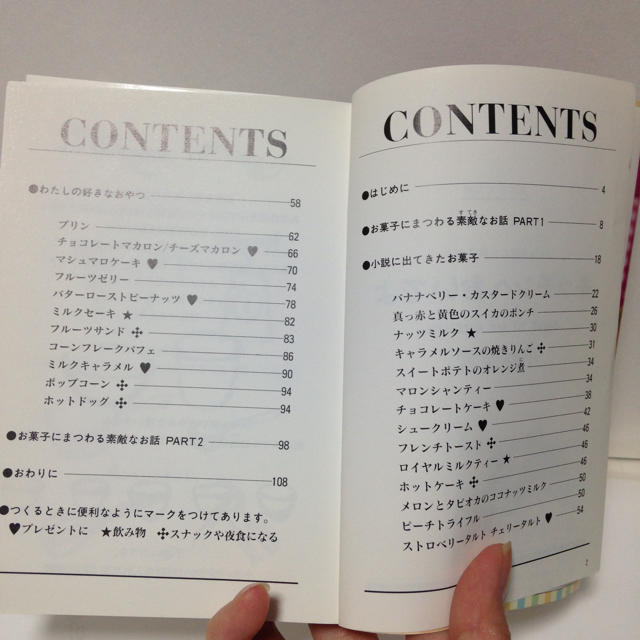 CONTENTS
●はじめに 4
●お菓子にまつわる素敵なお話 PART1 8
すてき
●小説に出てきたお菓子 18
バナナベリー・カスタードクリーム 22
真っ赤と黄色のスイカのポンチ 26
ナッツミルク ★ 30
キャラメルソースの焼きりんご ✣ 31
スイートポテトのオレンジ煮 34
に
マロンシャンティー 34
チョコレートケーキ ♥ 38
シュークリーム ♥ 42
フレンチトースト ✣ 46
ロイヤルミルクティー ★ 46
ホットケーキ ✣ 46
メロンとタピオカのココナッツミルク 50
ピーチトライフル 50
ストロベリータルト チェリータルト ♥ 54
2
CONTENTS
●わたしの好きなおやつ 58
プリン 62
チョコレートマカロン/チーズマカロン ♥ 66
マシュマロケーキ ♥ 70
フルーツゼリー 74
バターローストピーナッツ ♥ 78
ミルクセーキ ★ 82
フルーツサンド ✣ 83
コーンフレークパフェ 86
ミルクキャラメル ♥ 90
ポップコーン ✣ 94
ホットドッグ ✣ 94
●お菓子にまつわる素敵なお話 PART2 98
●おわりに 108
●つくるときに便利なようにマークをつけてあります。
♥プレゼントに ★飲み物 ✣スナックや夜食になる